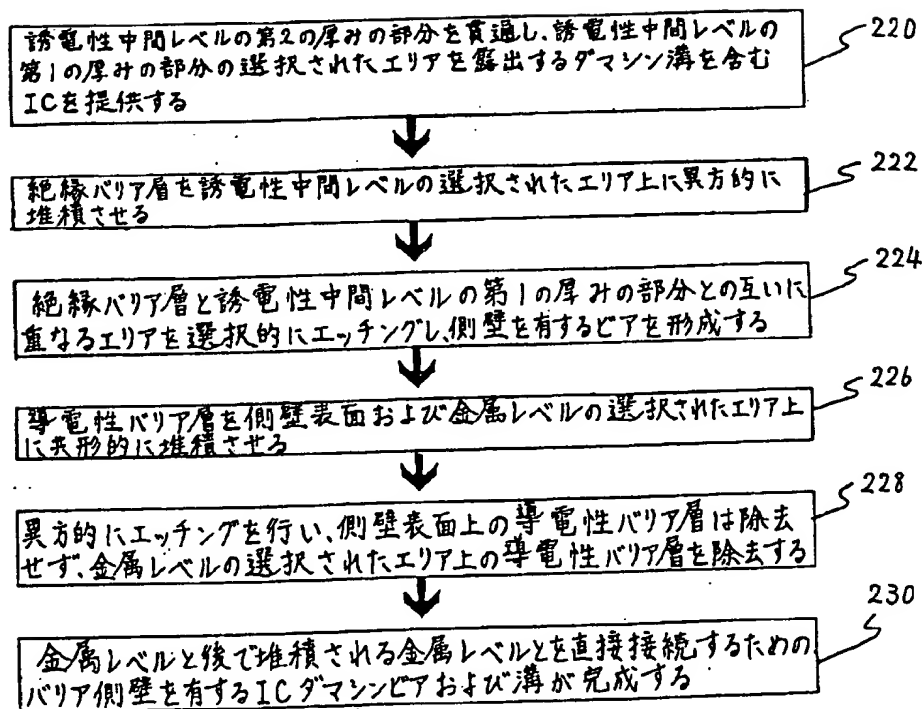 誘電性中間レベルの第2の厚みの部分を貫通し、誘電性中間レベルの
第1の厚みの部分の選択されたエリアを露出するダマシン溝を含む
ICを提供する
220
絶縁バリア層を誘電性中間レベルの選択されたエリア上に異方的に
堆積させる
222
絶縁バリア層と誘電性中間レベルの第1の厚みの部分との互いに
重なるエリアを選択的にエッチングし、側壁を有するビアを形成する
224
導電性バリア層を側壁表面および金属レベルの選択されたエリア上
に共形的に堆積させる
226
異方的にエッチングを行い、側壁表面上の導電性バリア層は除去
せず、金属レベルの選択されたエリア上の導電性バリア層を除去する
228
金属レベルと後で堆積される金属レベルとを直接接続するための
バリア側壁を有するICダマシンビアおよび溝が完成する
230